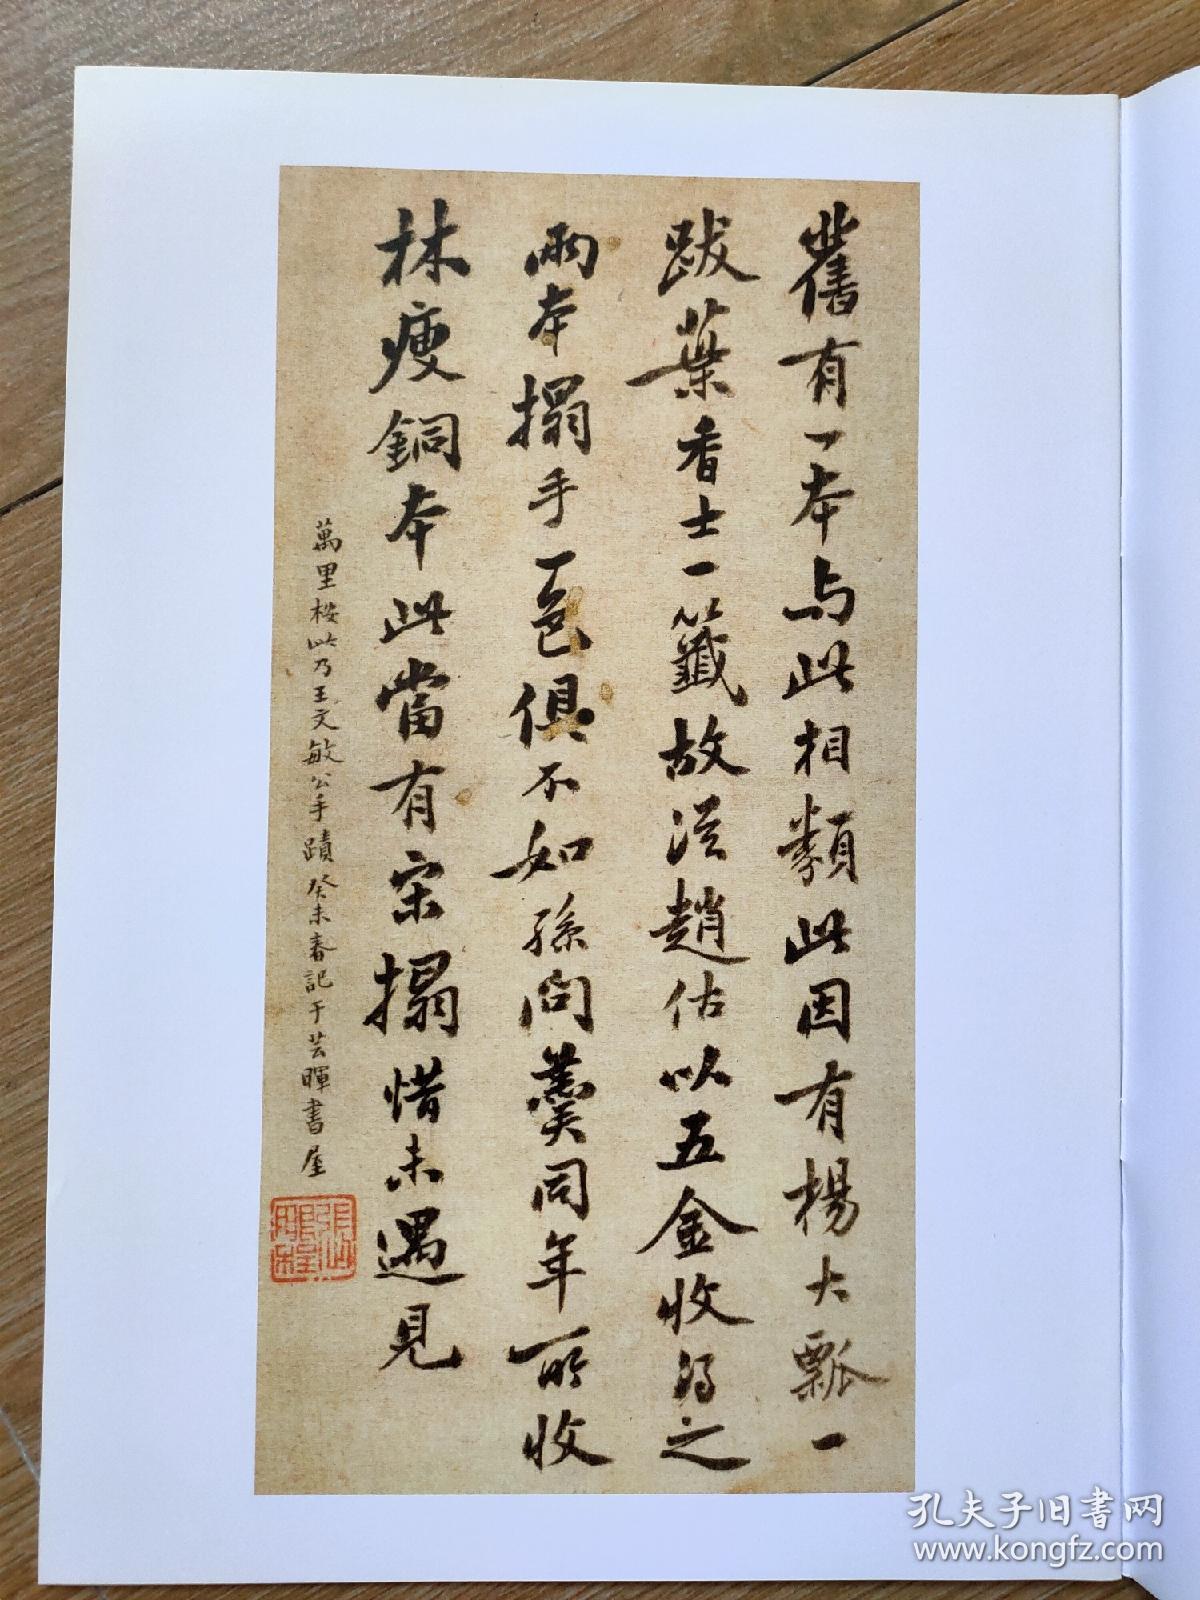 舊有一本与此相類此因有楊大瓢一
跋葉香士一籤故從趙估以五金收得之
兩本搨手一色俱不如孫問羹同年所收
林瘦銅本此當有宋搨惜未遇見
萬里桉此乃王文敏公手蹟癸未春記于芸暉書屋
孔夫子旧书网
www.kongfz.com